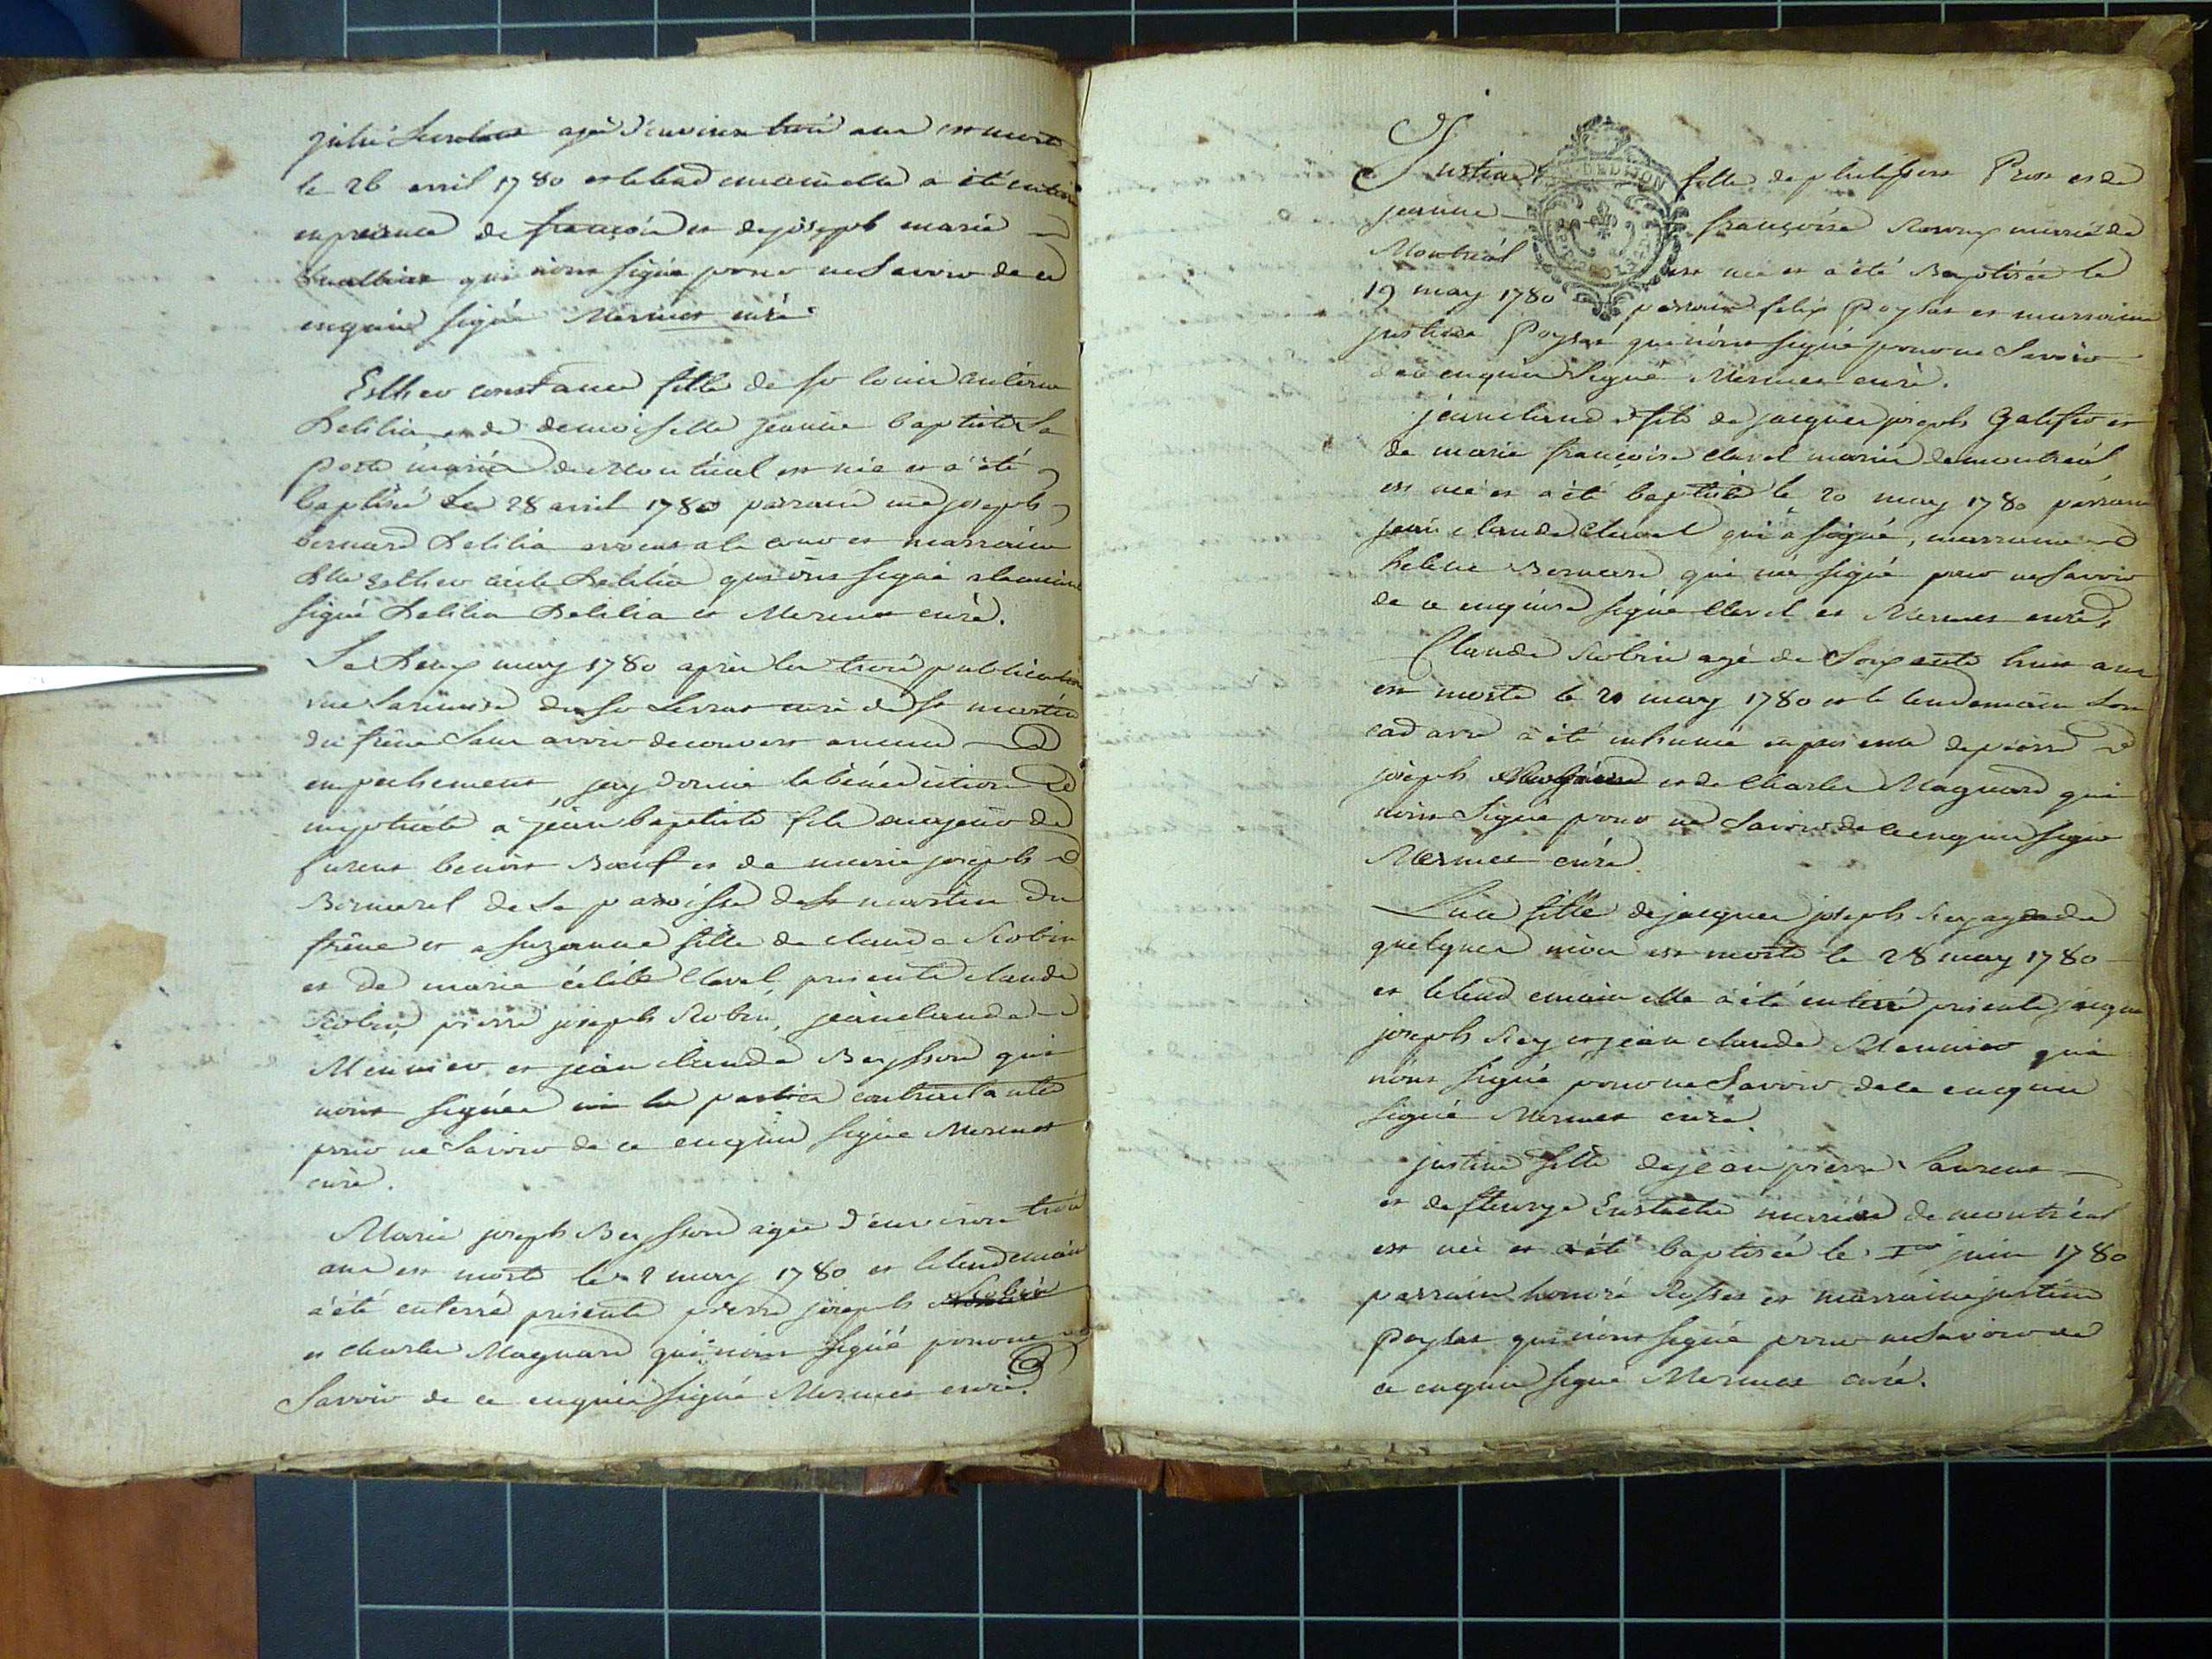 julie agé d'environ trois ans est morte
le 26 avril 1780 et le lendemain elle a été enterré
en présence de françois et de joseph marie
qui n'ont signé pour ne savoir de ce
enquis signé Mermet curé
Esther constance fille de sr louis
Delilia et de demoiselle jeanne baptiste La
porte mariés de Montréal est née et a été
baptisé le 28 avril 1780 parrain me joseph
bernard Delilia avocat à la cour et marraine
dlle Esther Delilia qui ont signé
signé Delilia Delilia et Mermet curé.
Le Deux may 1780 après les trois publications
du sr curé de st martin
du frêne sans avoir decouvert aucun
empechement jay donné la bénédiction
nuptiale a jean baptiste fils de
furent benoit Boeuf et de marie joseph
de la paroisse de st martin du
frêne et a suzanne fille de claude Robin
et de marie Clavel, présents claude
Robin, pierre joseph Robin, jean claude
Meunier et jean claude Beysson qui
n'ont signés ni les parties contractantes
pour ne savoir de ce enquis signé Mermet
curé.
Marie joseph Beysson agée d'environ trois
ans est morte le 2 may 1780 et le lendemain
a été enterré présents pierre joseph Robin
et charles Magnard qui n'ont signé pour ne
savoir de ce enquis signé Mermet curé.
Justine fille de philippe Pros et de
DE DIJON
jeanne françoise mariés de
Montréal est née et a été Baptisée le
19 may 1780 parrain felix Poysat et marraine
justine Poysat qui n'ont signé pour ne savoir
de ce enquis signé Mermet curé.
jean claude fils de jacques joseph et
de marie françoise Clavel mariés de montréal
est né et a été baptisé le 20 may 1780 parrain
jean claude Clavel qui a signé, marraine
helene Bernard qui n'a signé pour ne savoir
de ce enquise signé Clavel et Mermet curé,
Claude Robin agé de soixante huit ans
est morte le 20 may 1780 et le lendemain son
cadavre a été inhumé en présence de pierre
joseph et de Charles Magnard qui
n'ont signé pour ne savoir de ce enquis signé
Mermet curé.
fille de jacques joseph Rey agée de
quelques mois est morte le 28 may 1780
et le lendemain elle a été enterré présents jacques
joseph Rey et jean claude Meunier qui
n'ont signé pour ne savoir de ce enquis
signé Mermet curé.
justine fille de jean pierre Laurent
et de fleurye Eustache mariés de montréal
est née et a été baptisée le 1er juin 1780
parrain honoré Rosset et marraine justine
Poysat qui n'ont signé pour ne savoir de
ce enquis signé Mermet curé.